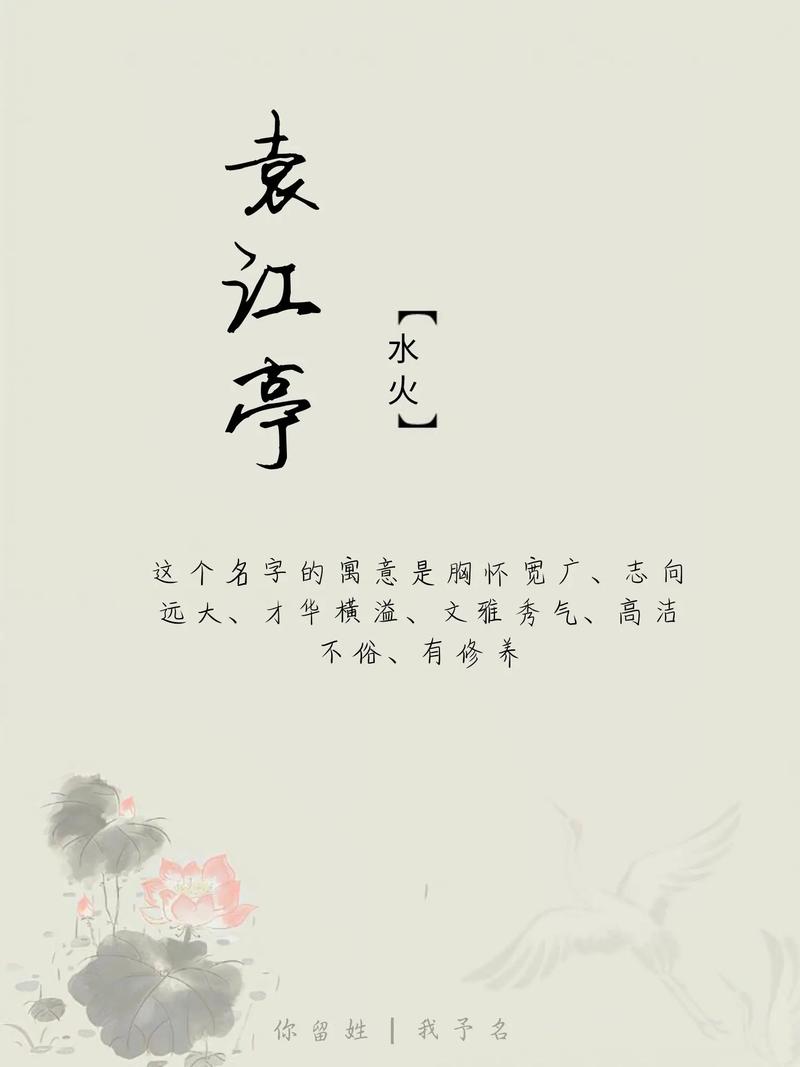 袁江亭
【水火】
这个名字的寓意是胸怀宽广、志向
远大、才华横溢、文雅秀气、高洁
不俗、有修养
你留姓|我予名